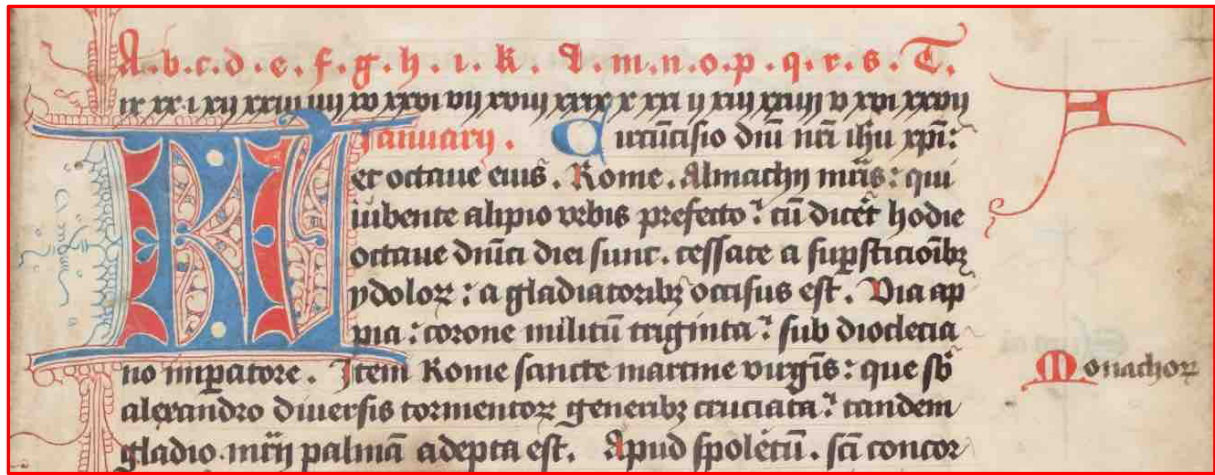 A. b. c. d. e. f. g. h. i. k. l. m. n. o. p. q. r. s. T.
ix xx i xij xxiij iiij xv xxvi vij xviij xxix x xxi ij xiij xxiiij v xvi xxvij
Januarij. Circũcisio dñi nr̃i ih̃u xp̃i:
et octaue eiuˢ. Rome. Almachij mr̃is: qui
iubente alipio vrbis prefecto: cũ dicẽt hodie
octaue dñici diei sunt. cessate a sup̱sticioĩbꝫ
ydoloꝝ: a gladiatoribꝫ occisus est. Via ap
pia: corone militũ triginta: sub dioclecia
no imp̱atore. Item Rome sancte martine virgĩs: que sb̃
alexandro diuersis tormentoꝝ generibꝫ cruciata: tandem
gladio mr̃ij palmã adepta est. Apud spoletũ. sc̃i concor
A
Monachoꝝ